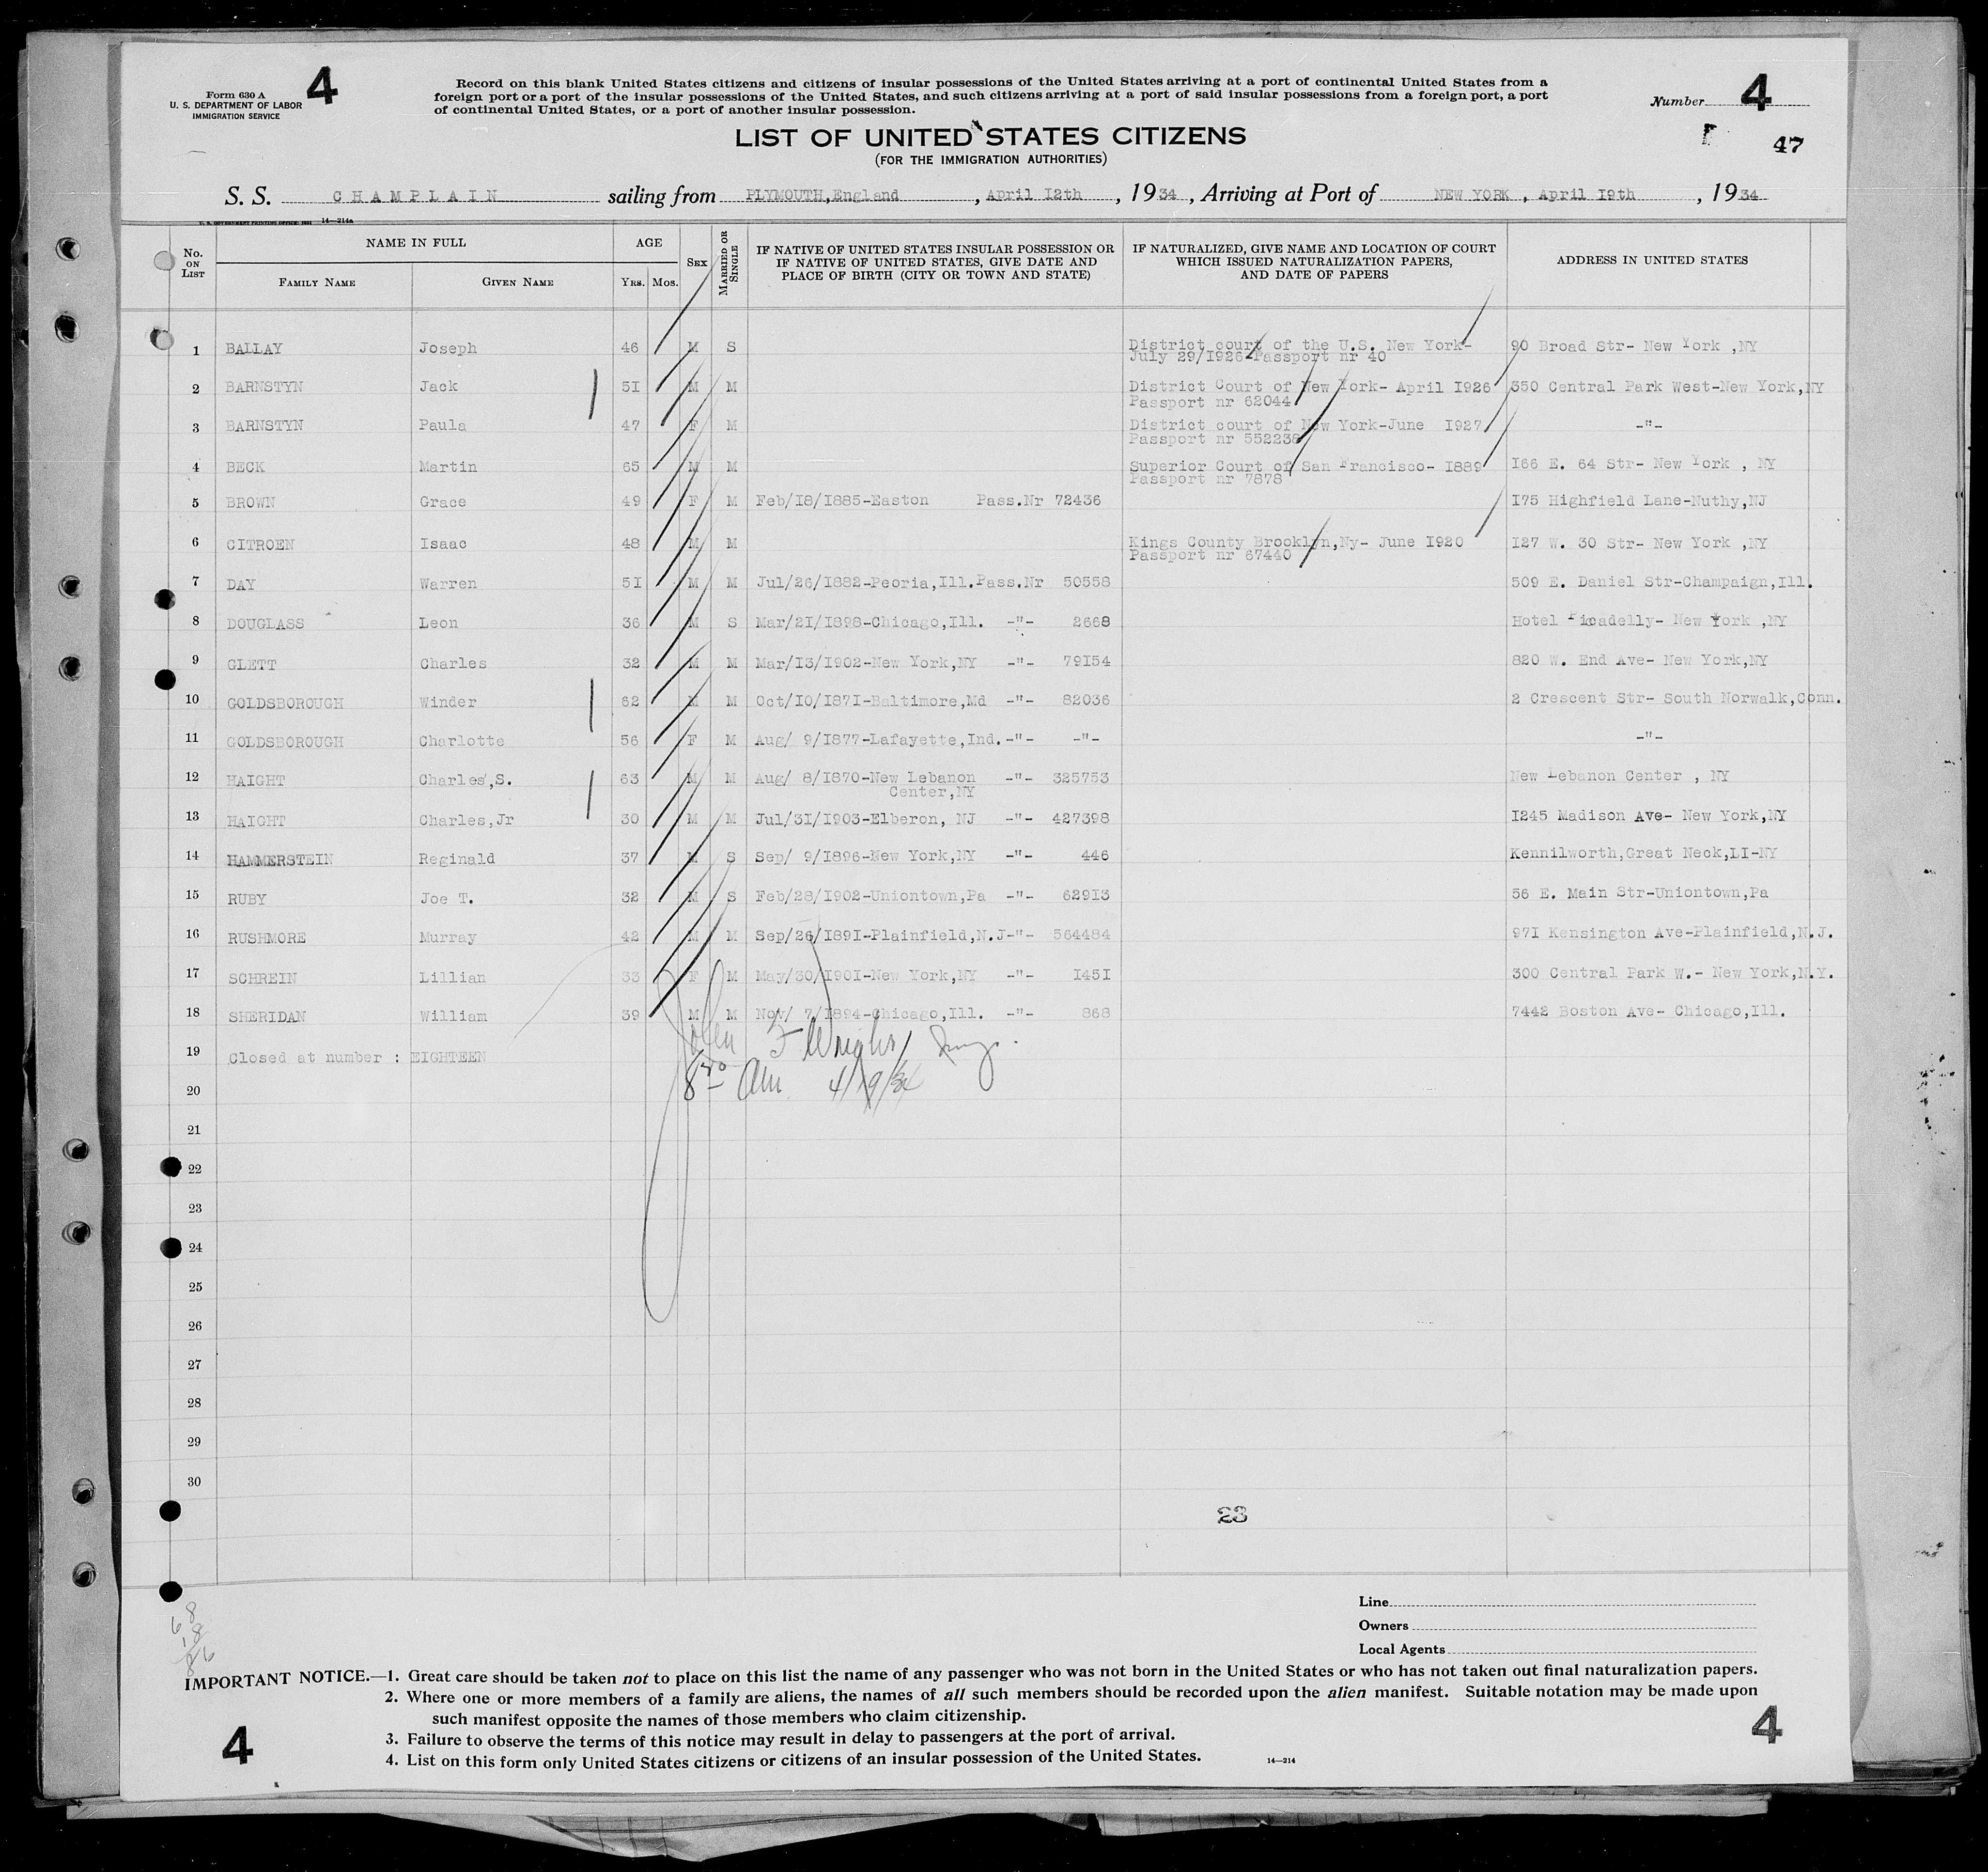 Form 630 A
U. S. DEPARTMENT OF LABOR
IMMIGRATION SERVICE
4
Record on this blank United States citizens and citizens of insular possessions of the United States arriving at a port of continental United States from a
foreign port or a port of the insular possessions of the United States, and such citizens arriving at a port of said insular possessions from a foreign port, a port
of continental United States, or a port of another insular possession.
Number 4
47
LIST OF UNITED STATES CITIZENS
(FOR THE IMMIGRATION AUTHORITIES)
S. S. CHAMPLAIN sailing from PLYMOUTH,England , April I2th , 1934 , Arriving at Port of NEW YORK , April I9th , 1934
U. S. GOVERNMENT PRINTING OFFICE: 1931 14—214a
No. ON LIST
NAME IN FULL
FAMILY NAME
GIVEN NAME
AGE
YRS. MOS.
SEX
MARRIED OR SINGLE
IF NATIVE OF UNITED STATES INSULAR POSSESSION OR
IF NATIVE OF UNITED STATES, GIVE DATE AND
PLACE OF BIRTH (CITY OR TOWN AND STATE)
IF NATURALIZED, GIVE NAME AND LOCATION OF COURT
WHICH ISSUED NATURALIZATION PAPERS,
AND DATE OF PAPERS
ADDRESS IN UNITED STATES
1 BALLAY Joseph 46 M S District court of the U.S. New York- 90 Broad Str- New York ,NY
July 29/I926-Passport nr 40
2 BARNSTYN Jack 5I M M District Court of New York- April I926 350 Central Park West-New York,NY
Passport nr 62044
3 BARNSTYN Paula 47 F M District court of New York-June I927 -"-
Passport nr 552238
4 BECK Martin 65 M M Superior Court of San Francisco- I889 I66 E. 64 Str- New York , NY
Passport nr 7878
5 BROWN Grace 49 F M Feb/I8/I885-Easton Pass.Nr 72436 I75 Highfield Lane-Nuthy,NJ
6 CITROEN Isaac 48 M M Kings County Brooklyn,Ny- June I920 I27 W. 30 Str- New York ,NY
Passport nr 67440
7 DAY Warren 5I M M Jul/26/I882-Peoria,Ill.Pass.Nr 50558 509 E. Daniel Str-Champaign,Ill.
8 DOUGLASS Leon 36 M S Mar/2I/I898-Chicago,Ill. -"- 2668 Hotel Picadelly- New York ,NY
9 GLETT Charles 32 M M Mar/I3/I902-New York,NY -"- 79I54 820 W. End Ave- New York,NY
10 GOLDSBOROUGH Winder 62 M M Oct/I0/I87I-Baltimore,Md -"- 82036 2 Crescent Str- South Norwalk,Conn.
11 GOLDSBOROUGH Charlotte 56 F M Aug/ 9/I877-Lafayette,Ind.-"- -"- -"-
12 HAIGHT Charles,S. 63 M M Aug/ 8/I870-New Lebanon -"- 325753 New Lebanon Center , NY
Center,NY
13 HAIGHT Charles,Jr 30 M M Jul/3I/I903-Elberon, NJ -"- 427398 I245 Madison Ave- New York,NY
14 HAMMERSTEIN Reginald 37 M S Sep/ 9/I896-New York,NY -"- 446 Kennilworth,Great Neck,LI-NY
15 RUBY Joe T. 32 M S Feb/28/I902-Uniontown,Pa -"- 629I3 56 E. Main Str-Uniontown,Pa
16 RUSHMORE Murray 42 M M Sep/26/I89I-Plainfield,N.J-"- 564484 97I Kensington Ave-Plainfield,N.J.
17 SCHREIN Lillian 33 F M May/30/I90I-New York,NY -"- I45I 300 Central Park W.- New York,N.Y.
18 SHERIDAN William 39 M M Nov/ 7/I894-Chicago,Ill. -"- 868 7442 Boston Ave- Chicago,Ill.
19 Closed at number : EIGHTEEN
John F Wright
20
8 30 AM 4/19/34
21
22
23
24
25
26
27
28
29
30
23
Line
Owners
Local Agents
68
18
86
IMPORTANT NOTICE.—1. Great care should be taken not to place on this list the name of any passenger who was not born in the United States or who has not taken out final naturalization papers.
2. Where one or more members of a family are aliens, the names of all such members should be recorded upon the alien manifest. Suitable notation may be made upon
such manifest opposite the names of those members who claim citizenship.
3. Failure to observe the terms of this notice may result in delay to passengers at the port of arrival.
4. List on this form only United States citizens or citizens of an insular possession of the United States.
14—214
4
4